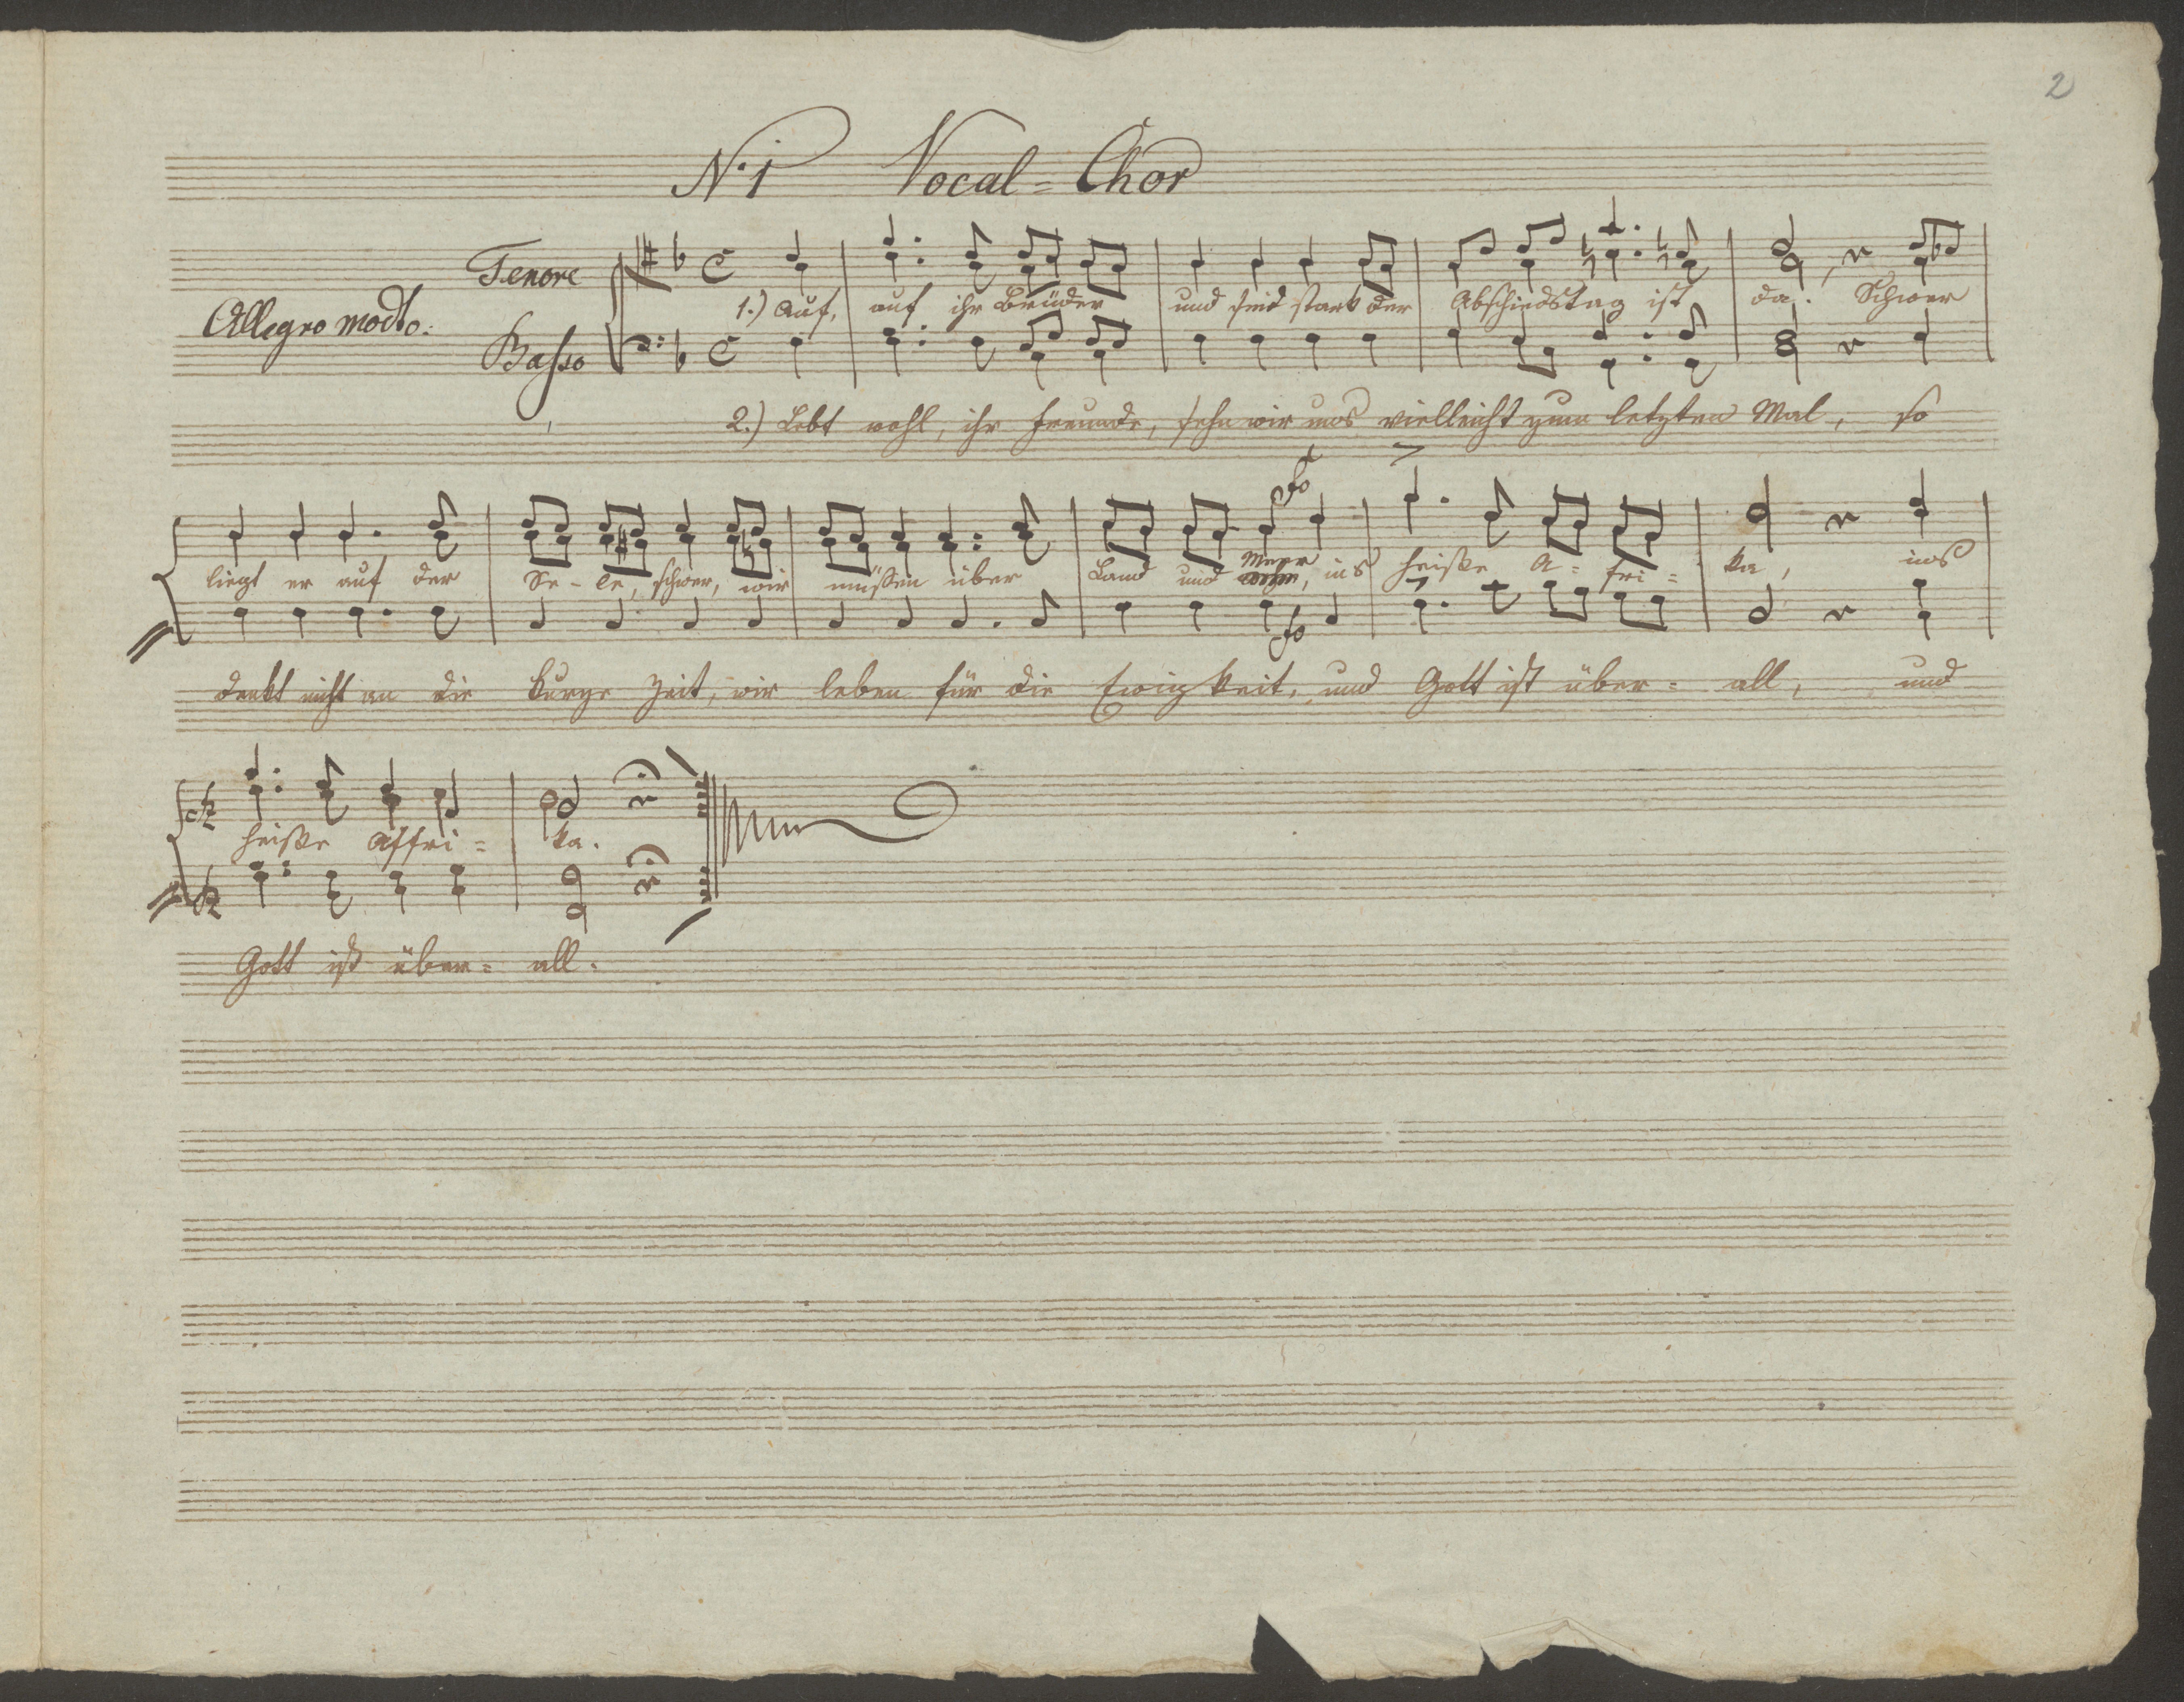 2
N. 1 Vocal = Chor
Tenore
Allegro modto.
Basso
1.) Auf, auf ihr Brüder und seid stark der Abschiedstag ist da. Schwer
2.) Lebt wohl, ihr Freunde, sehn wir uns vielleicht zum letzten Mal, so
fo
liegt er auf der See-le, schwer, wir müßen über Land und Meer, ins heiße A-fri= ka, ins
fo
denkt nicht an die kurze Zeit, wir leben für die Ewigkeit, und Gott ist über= all, und
heiße Affri= ka.
Gott ist über= all.